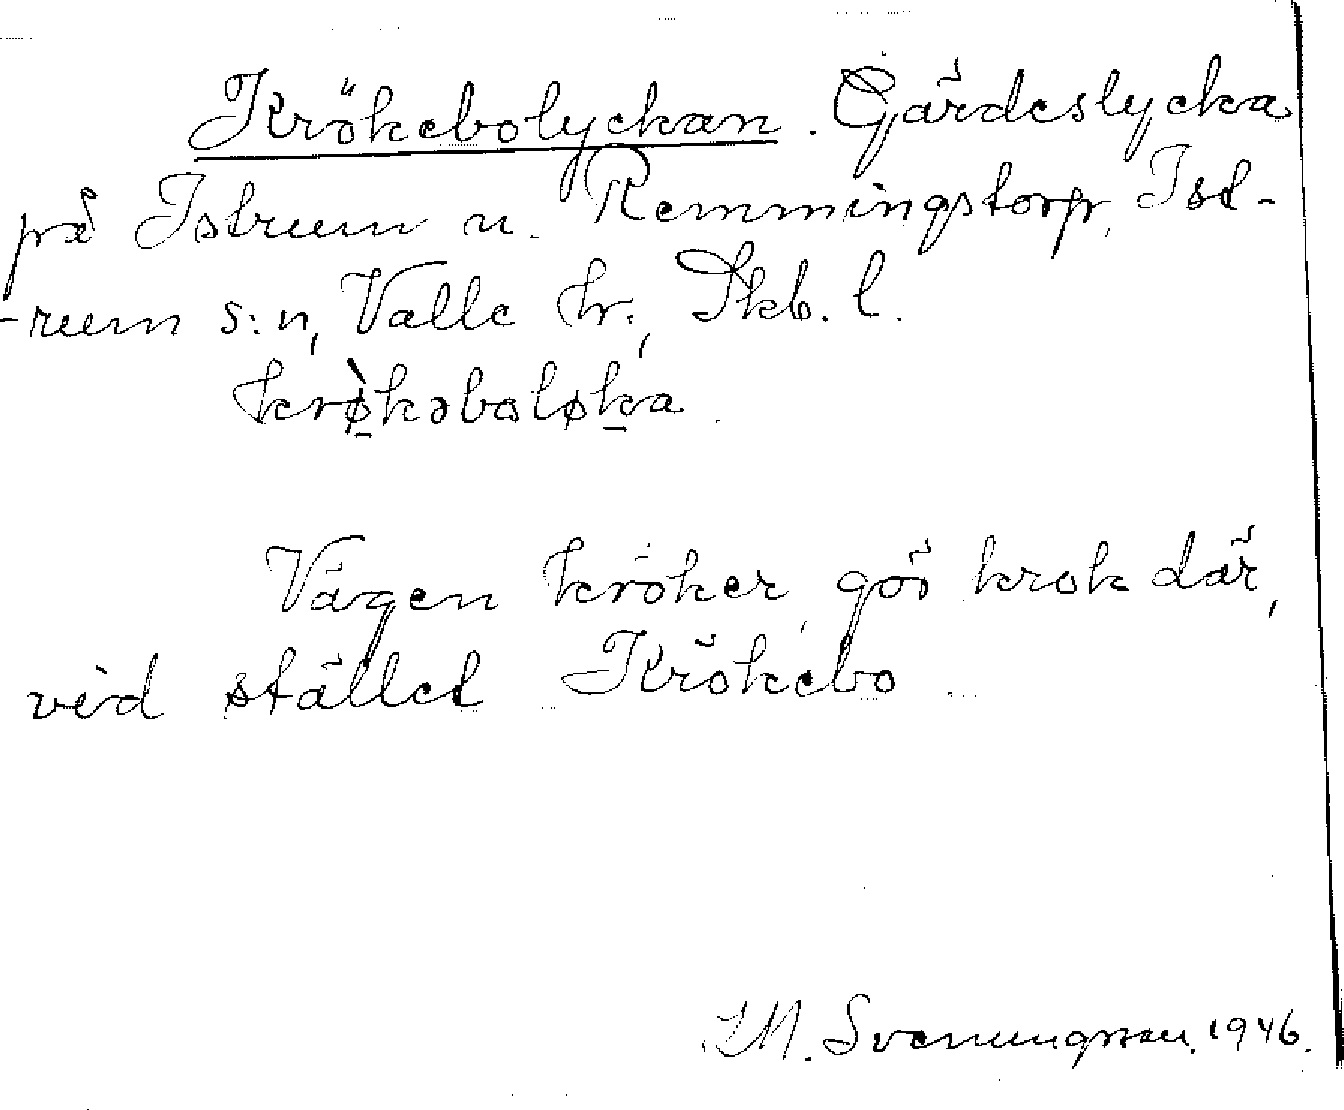 Krökebolyckan. Gärdeslycka
på Istrum u. Remmingstorp, Ist-
-rum s:n, Valle hr., Skb. l.
krø̀kəboløka.
Vägen kröker, gör krok där,
vid stället Krökebo
Svenungsson. 1946.